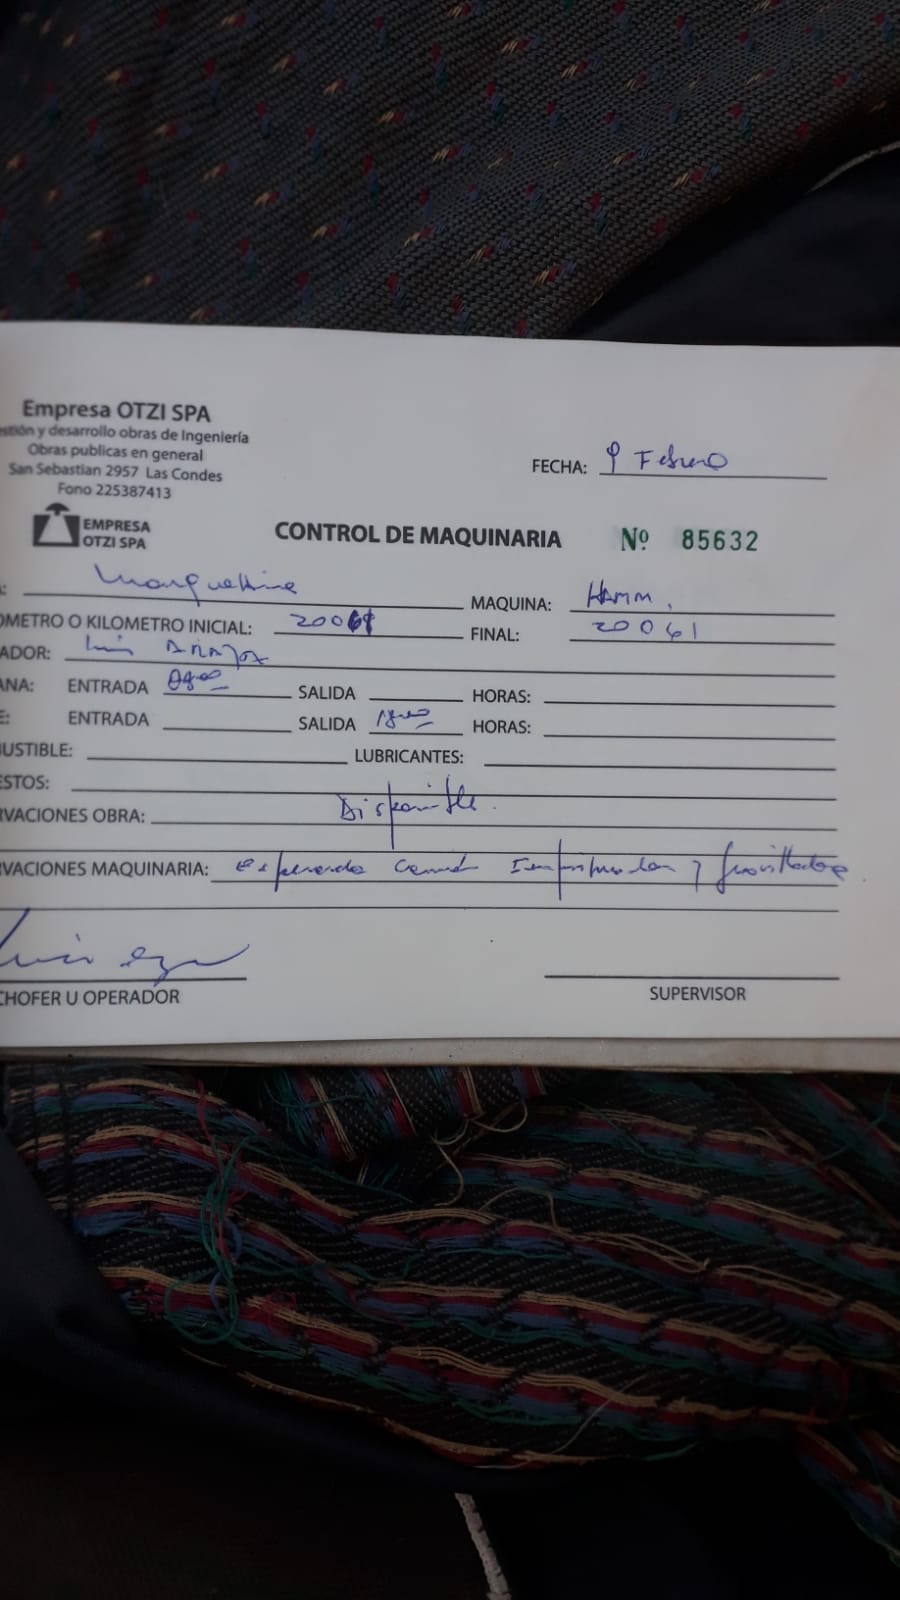 Empresa OTZI SPA
stión y desarrollo obras de Ingeniería
Obras publicas en general
San Sebastian 2957 Las Condes
Fono 225387413
EMPRESA
OTZI SPA
FECHA: 9 Febrero
CONTROL DE MAQUINARIA Nº 85632
A: MAQUINA: HAMM.
OMETRO O KILOMETRO INICIAL: 20061 FINAL: 20061
ADOR: Luis
ANA: ENTRADA 08:00 SALIDA HORAS:
E: ENTRADA SALIDA 18:00 HORAS:
USTIBLE: LUBRICANTES:
ESTOS:
RVACIONES OBRA: Disponible.
RVACIONES MAQUINARIA: esperando y
CHOFER U OPERADOR SUPERVISOR